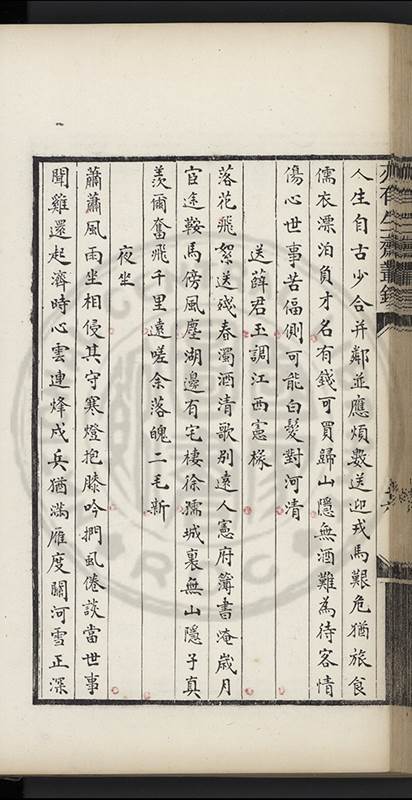 人生自古少合并鄰並應煩數送迎戎馬艱危猶旅食
儒衣漂泊負才名有錢可買歸山隱無酒難為待客情
傷心世事苦偪側可能白髮對河清
送薛君玉調江西憲掾
落花飛絮送殘春濁酒清歌別遠人憲府簿書淹歲月
宦途鞍馬傍風塵湖邊有宅棲徐孺城裏無山隱子真
羨爾奮飛千里遠嗟余落魄二毛新
夜坐
蕭蕭風雨坐相侵其守寒燈抱膝吟捫虱倦談當世事
聞雞還起濟時心雲連烽戍兵猶滿雁度關河雪正深